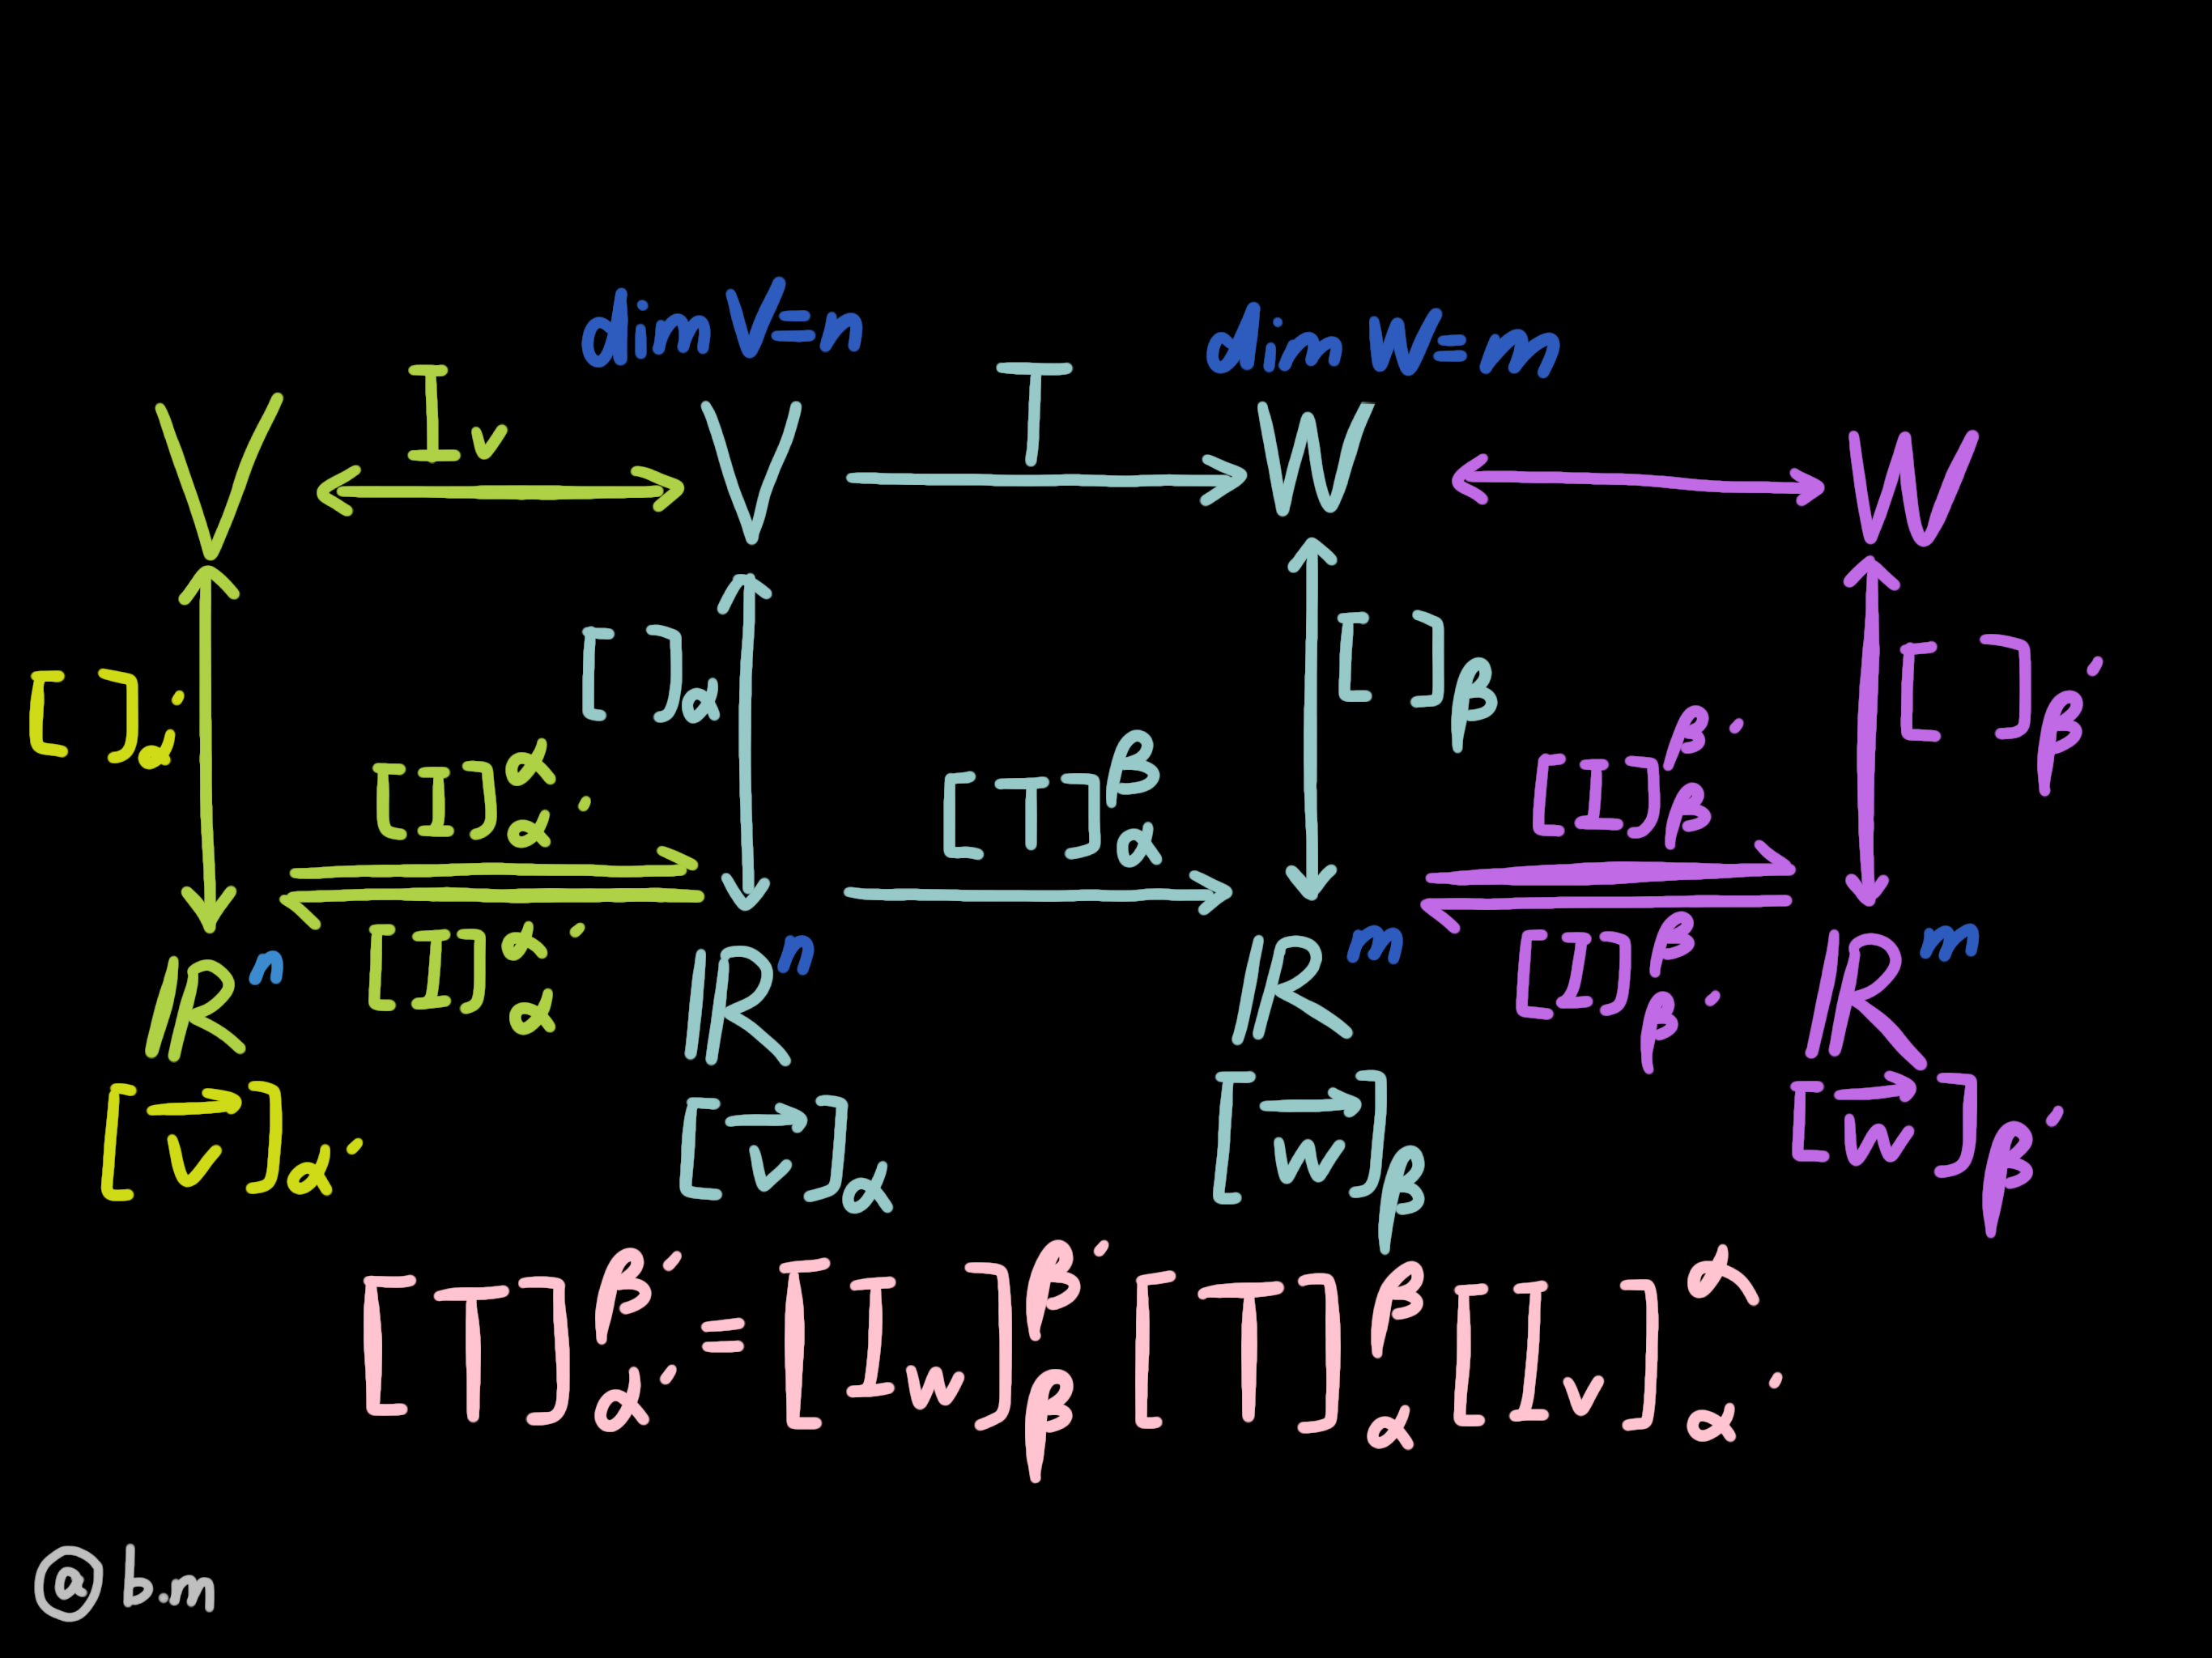 dim V = n dim W = m
V I_v V T W W
[ ]_α' [ ]_α [ ]_β [ ]_β'
[I]_α'^α [T]_α^β [I]_β^β'
[I]_α^α' [I]_β'^β
ℝ^n ℝ^n ℝ^m ℝ^m
[v⃗]_α' [v⃗]_α [w⃗]_β [w⃗]_β'
[T]_α'^β' = [I_w]_β^β' [T]_α^β [I_v]_α'^α
@b.m